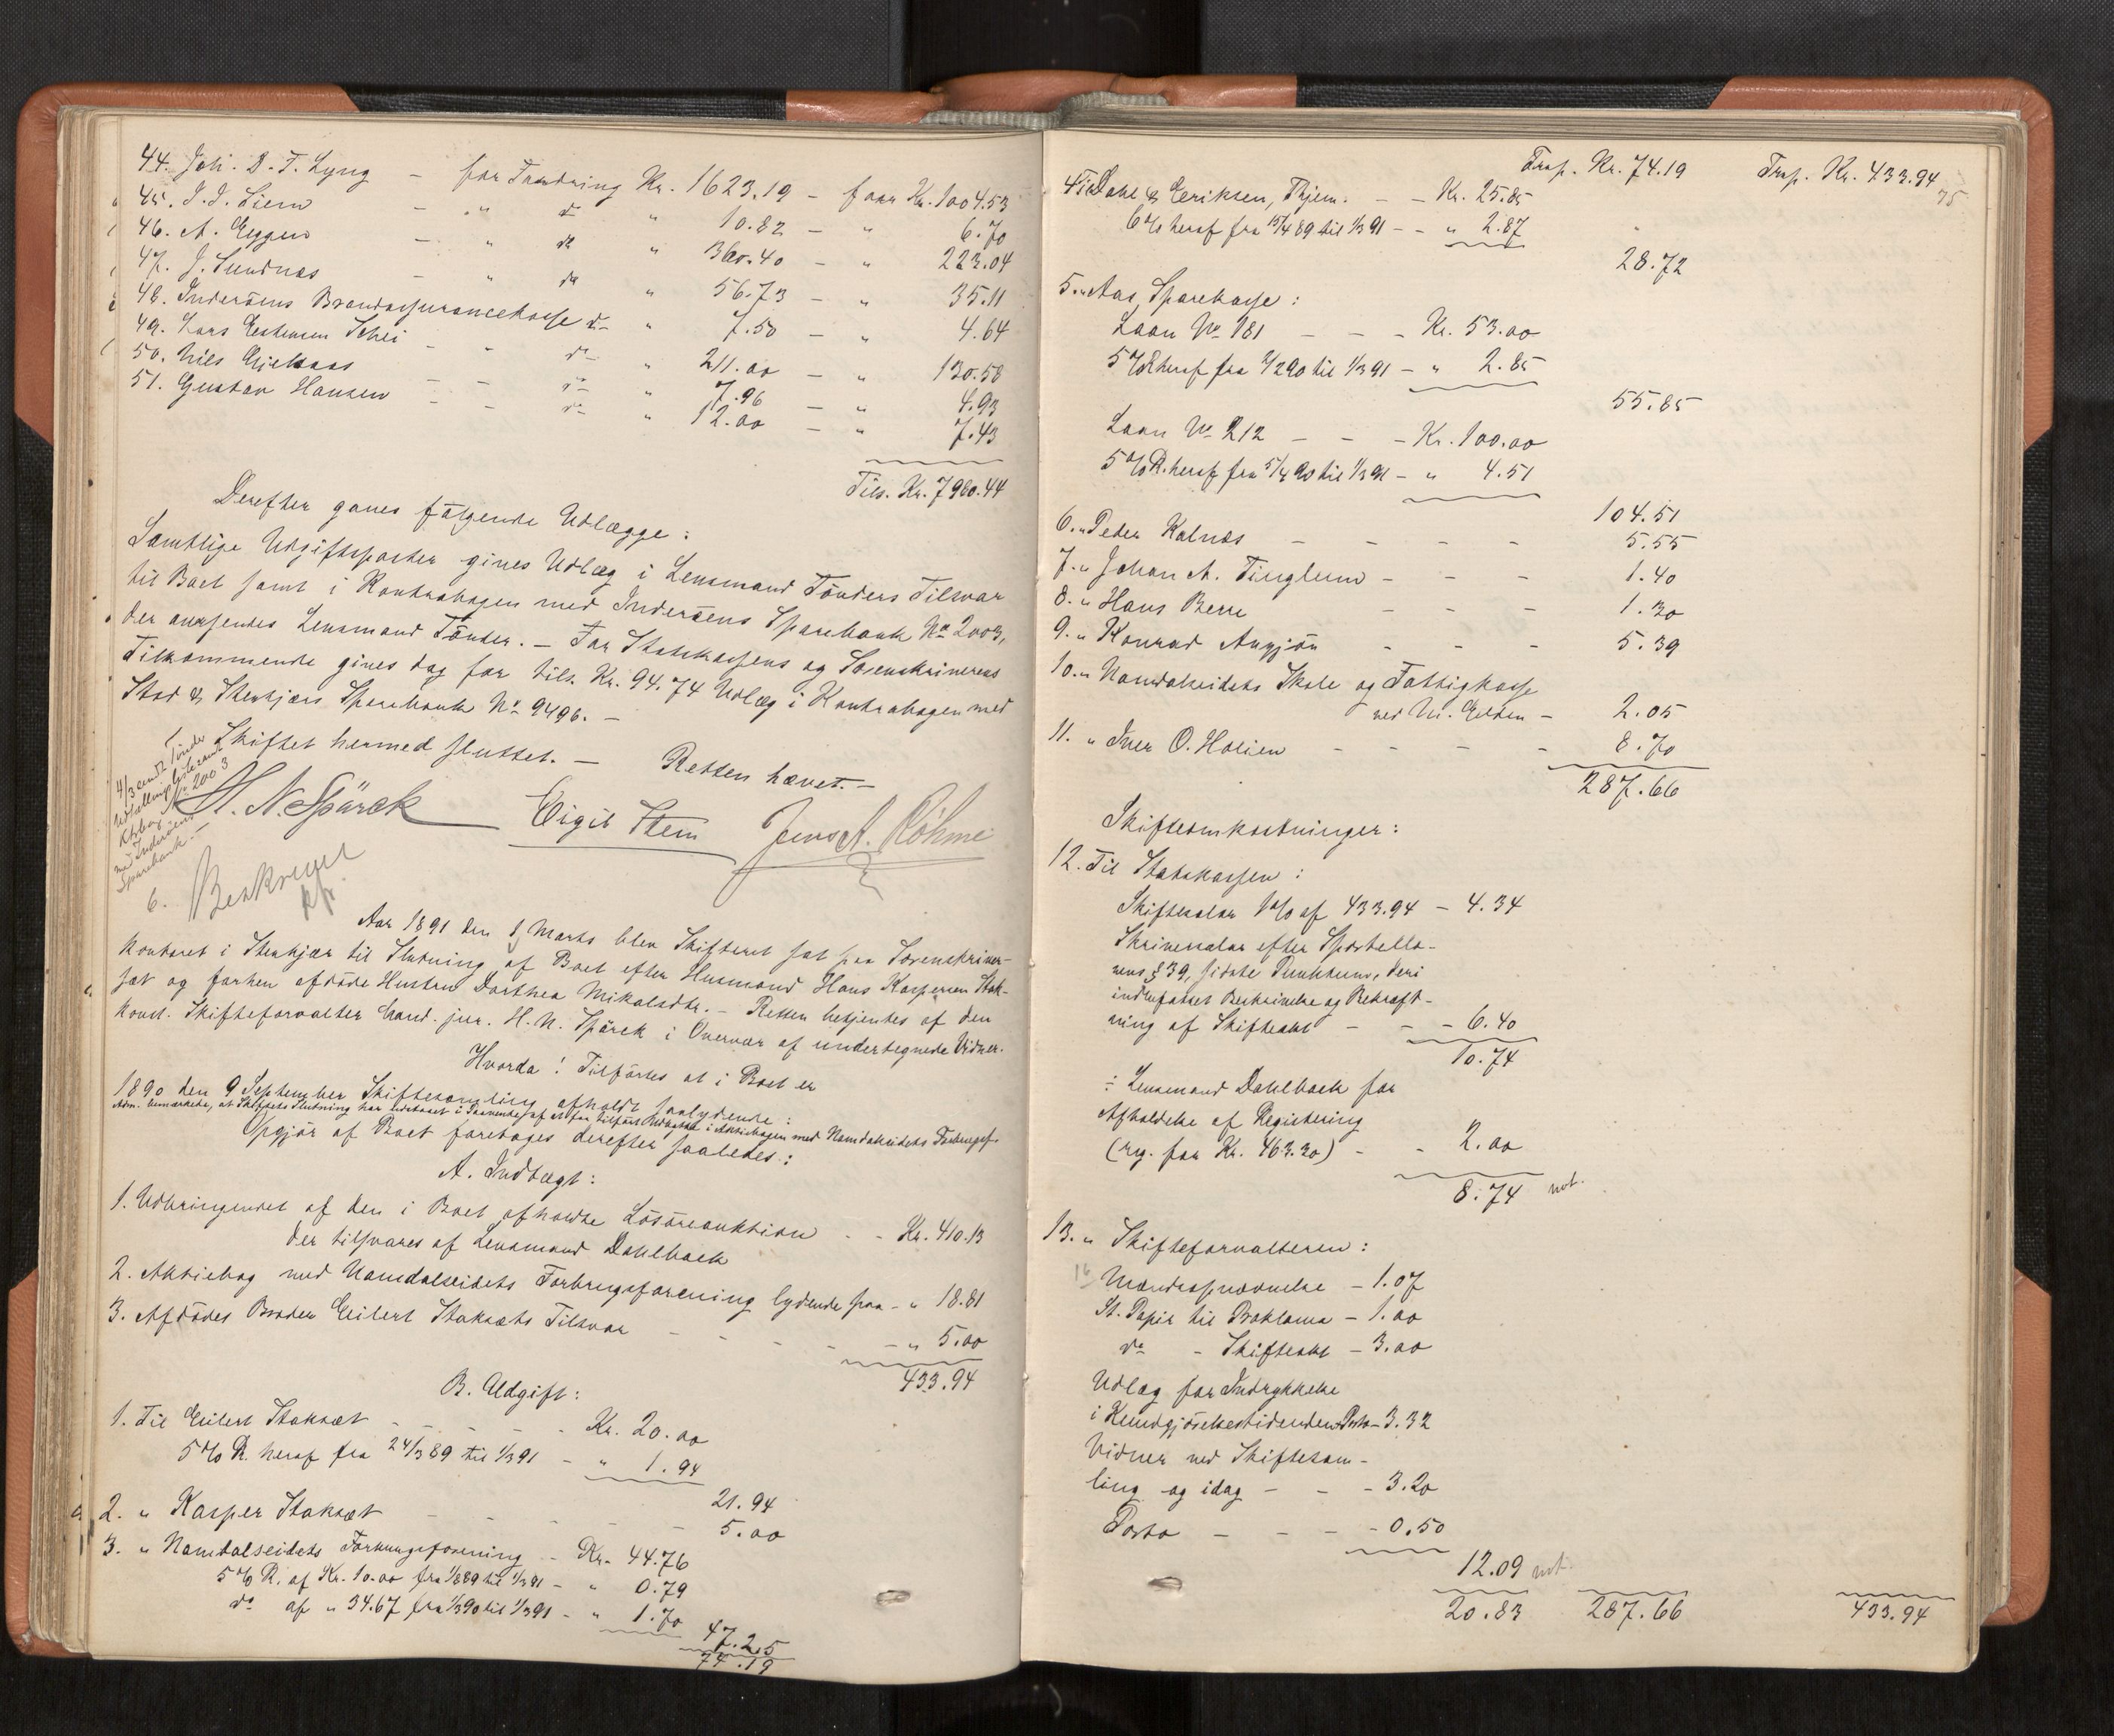 44. Joh. D. F. Lyng - for Fordring Kr. 1623.19 - faar Kr. 1004.53
45. J. J. Liern - " do " 10.82 - " 6.70
46. A. Eggen - " do " 360.40 - " 223.04
47. J. Sundnæs - " do " 56.73 - " 35.11
48. Inderøens Brandassurancekasse do " 7.50 - " 4.64
49. Lars Schei - " do " 211.00 - " 130.58
50. Nils Gjelsaas - - do " 7.96 - " 4.93
51. Gustav Hansen - - do " 12.00 - " 7.43
Tils. Kr. 7960.44
Derefter gaves følgende Udlægge:
Samtlige Udgiftsposter gives Udlæg i Lensmand Tønders Tilsvar
til Boet samt i Kontrabogen med Inderøens Sparebank No 2003,
der anvendes Lensmand Tønder. - For Statskassens og Sorenskriverens
Tilkommende gives dog for tils. Kr. 94.74 Udlæg i Kontrabogen med
Stod & Stenkjærs Sparebank No 9496. -
Skiftet hermed sluttet. - Retten hævet. -
4/3 sendt Tønder
No 2003
med Inderøens
Sparebank. -
H. N. Spärck Eigil Stem Jens A. Röhme
6. Beskreven
Aar 1891 den 1 Marts blev Skifteret sat paa Sorenskriver-
kontoret i Stenkjær til Slutning af Boet efter Husmand Hans Kaspersen Stok-
sæt og forhen afdøde Hustru Dorthea Mikalsdtr. - Retten betjentes af den
konst. Skifteforvalter Cand. jur. H. N. Spärck i Overvær af undertegnede Vidner.
Hvorda! Tilførtes at i Boet er
1890 den 9 September Skiftesamling afholdt saalydende:
Adm. bemærkede, at Skiftets Slutning har udestaaet i Paavente af at faa tilført Udlægges i Aktiebogen med Namdalseidets Forbrugsf.
Opgjør af Boet foretoges derefter saaledes:
A. Indtægt:
1. Udbringendet af den i Boet afholdte Løsøreauktion - - Kr. 410.13
der tilsvares af Lensmand Dahlback
2. Aktiebog med Namdalseidets Forbrugsforening lydende paa - " 18.81
3. Afdødes Broder Eilert Stoksæts Tilsvar - - - - " 5.00
433.94
B. Udgift:
1. Til Eilert Stoksæt - - - - Kr. 20.00
5 % R. heraf fra 24/3 89 til 1/3 91 - " 1.94
21.94
2. " Kasper Stoksæt - - - - - 5.00
3. " Namdalseidets Forbrugsforening - Kr. 44.76
5 % R. af Kr. 10.00 fra 1/8 89 til 1/3 91 - " 0.79
do af " 34.67 fra 1/3 90 til 1/3 91 - " 1.70
47.25
74.19
75
Trsp. Kr. 74.19 Trsp. Kr. 433.94
4. Til Dahl & Eriksen, Thjem. - - Kr. 25.85
6 % heraf fra 15/4 89 til 1/3 91 - - " 2.87
28.72
5. " Aas Sparekasse:
Laan No 181 - - - Kr. 53.00
5 % R heraf fra 1/2 90 til 1/3 91 - " 2.85
55.85
Laan No 212 - - - Kr. 100.00
5 % R. heraf fra 5/4 90 til 1/3 91 - " 4.51
104.51
6. " Peder Kalnæs - - - - 5.55
7. " Johan A. Tinglum - - - 1.40
8. " Hans Berre - - - 1.30
9. " Konrad - - - 5.39
10. " Namdalseidets Skole og Fattigkasse
ved M. Elden - 2.05
11. " Iver O. Holien - - - - 8.70
287.66
Skifteomkostninger:
12. Til Statskassen:
Skiftesalær 1 % af 433.94 - 4.34
Skriversalær efter Sportello-
vens § 39, sidste Punktum, deri
indbefattet Beskrivelse og Bekræft-
ning af Skifteakt - - - 6.40
10.74
÷ Lensmand Dahlback for
Afholdelse af Registering
(reg. for Kr. 463.30) - - 2.00
8.74 not.
13. " Skifteforvalteren:
Mandsopnævnelse - 1.07
St. Papir til Proklama - 1.00
do - Skifteakt - 3.00
Udlæg for Indrykkelse
i Kundgjørelsestidenden & Porto - 3.32
Vidner ved Skiftesam-
ling og idag - - - 3.20
Porto - - - - 0.50
12.09 not.
20.83 287.66 433.94